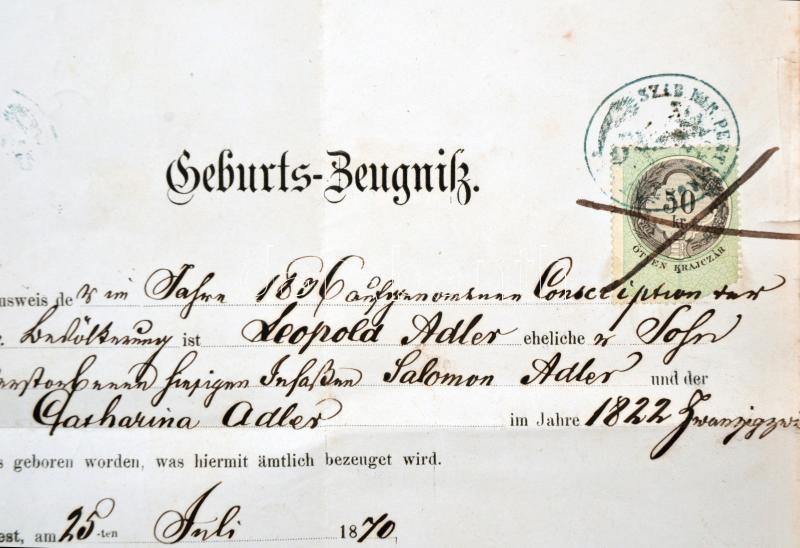 SZAB KIR PEST
Geburts-Zeugniß.
50
kr
ÖTVEN KRAJCZÁR
usweis des im Jahre 1836 aufgenommenen Conscription der
Bevölkerung ist Leopold Adler eheliche r Sohn
verstorbenen hiesigen Insaßen Salomon Adler und der
Catharina Adler im Jahre 1822 Zwanzigzwei
s geboren worden, was hiermit ämtlich bezeuget wird.
est, am 25-ten Juli 1870,